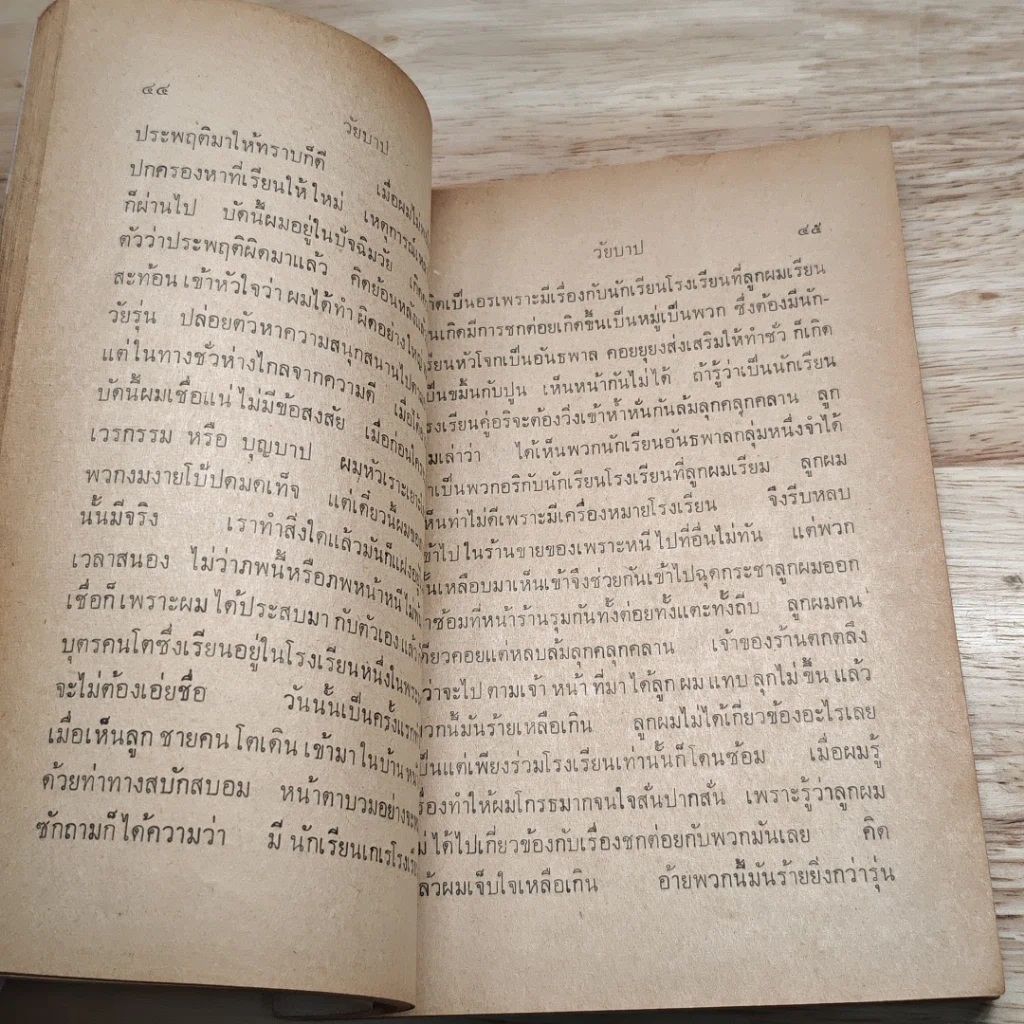 ๔๔
วัยบาป
ประพฤติมาให้ทราบก็ดี เมื่อผมไม่
ปกครองหาที่เรียนให้ใหม่ เหตุการณ์
ก็ผ่านไป บัดนี้ผมอยู่ในปัจฉิมวัย
ตัวว่าประพฤติผิดมาแล้ว คิดย้อนหลัง
สะท้อน เข้าหัวใจว่า ผมได้ทำ ผิดอย่างใหญ่
วัยรุ่น ปล่อยตัวหาความสนุกสนานไป
แต่ในทางชั่วห่างไกลจากความดี เมื่อ
บัดนี้ผมเชื่อแน่ ไม่มีข้อสงสัย เมื่อก่อน
เวรกรรม หรือ บุญบาป ผมหัวเราะ
พวกงมงายโป๊ปดมดเท็จ แต่เดี๋ยวนี้ผม
นั้นมีจริง เราทำสิ่งใดแล้วมันก็แฝงอยู่
เวลาสนอง ไม่ว่าภพนี้หรือภพหน้าหนีไม่
เชื่อก็เพราะผมได้ประสบมา กับตัวเอง
บุตรคนโตซึ่งเรียนอยู่ในโรงเรียนหนึ่งใน
จะไม่ต้องเอ่ยชื่อ วันนั้นเป็นครั้งแรก
เมื่อเห็นลูก ชายคน โตเดิน เข้ามา ในบ้าน
ด้วยท่าทางสบักสบอม หน้าตาบวมอย่าง
ซักถามก็ได้ความว่า มี นักเรียนเกเร
๔๕
วัยบาป
คิดเป็นอรเพราะมีเรื่องกับนักเรียนโรงเรียนที่ลูกผมเรียน
เกิดมีการชกต่อยเกิดขึ้นเป็นหมู่เป็นพวก ซึ่งต้องมีนัก-
เรียนหัวโจกเป็นอันธพาล คอยยุยงส่งเสริมให้ทำชั่ว ก็เกิด
เป็นขมิ้นกับปูน เห็นหน้ากันไม่ได้ ถ้ารู้ว่าเป็นนักเรียน
โรงเรียนคู่อริจะต้องวิ่งเข้าห้ำหั่นกันล้มลุกคลุกคลาน ลูก
ผมเล่าว่า ได้เห็นพวกนักเรียนอันธพาลกลุ่มหนึ่งจำได้
ว่าเป็นพวกอริกับนักเรียนโรงเรียนที่ลูกผมเรียม ลูกผม
เห็นท่าไม่ดีเพราะมีเครื่องหมายโรงเรียน จึงรีบหลบ
เข้าไป ในร้านขายของเพราะหนี ไปที่อื่นไม่ทัน แต่พวก
นั้นเหลือบมาเห็นเข้าจึงช่วยกันเข้าไปฉุดกระชาลูกผมออก
มาซ้อมที่หน้าร้านรุมกันทั้งต่อยทั้งแตะทั้งถีบ ลูกผมคน
เดียวคอยแต่หลบล้มลุกคลุกคลาน เจ้าของร้านตกตลึง
กว่าจะไป ตามเจ้า หน้า ที่มา ได้ลูก ผม แทบ ลุกไม่ ขึ้น แล้ว
พวกนี้มันร้ายเหลือเกิน ลูกผมไม่ได้เกี่ยวข้องอะไรเลย
เป็นแต่เพียงร่วมโรงเรียนเท่านั้นก็โดนซ้อม เมื่อผมรู้
เรื่องทำให้ผมโกรธมากจนใจสั่นปากสั่น เพราะรู้ว่าลูกผม
ไม่ ได้ไปเกี่ยวข้องกับเรื่องชกต่อยกับพวกมันเลย คิด
แล้วผมเจ็บใจเหลือเกิน อ้ายพวกนี้มันร้ายยิ่งกว่ารุ่น